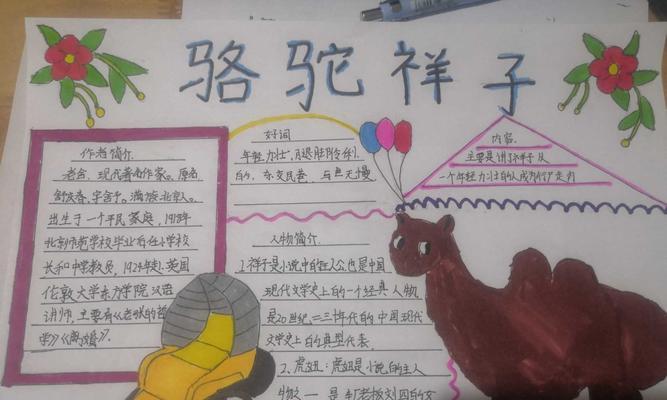 骆驼祥子
作者简介
老舍、现代著名作家。原名
舒庆春,字舍予。满族北京人。
出生于一个平民家庭,1918年
北京师范学校毕业后任小学校
长和中学教员,1924年赴英国
伦敦大学东方学院汉语
讲师,主要有《老张的哲
学》《离婚》.
好词
年轻力壮,
的、东交民巷、
内容.
主要是讲了祥子从
一个年轻力壮的人
人物简介.
1.祥子是小说中的主人公,也是中国
现代文学史上的一个经典人物,
是20世纪二三十年代的中国现代
文学史上的典型代表.
2、虎妞:虎妞是小说的主人
物之一是车厂老板刘四的女